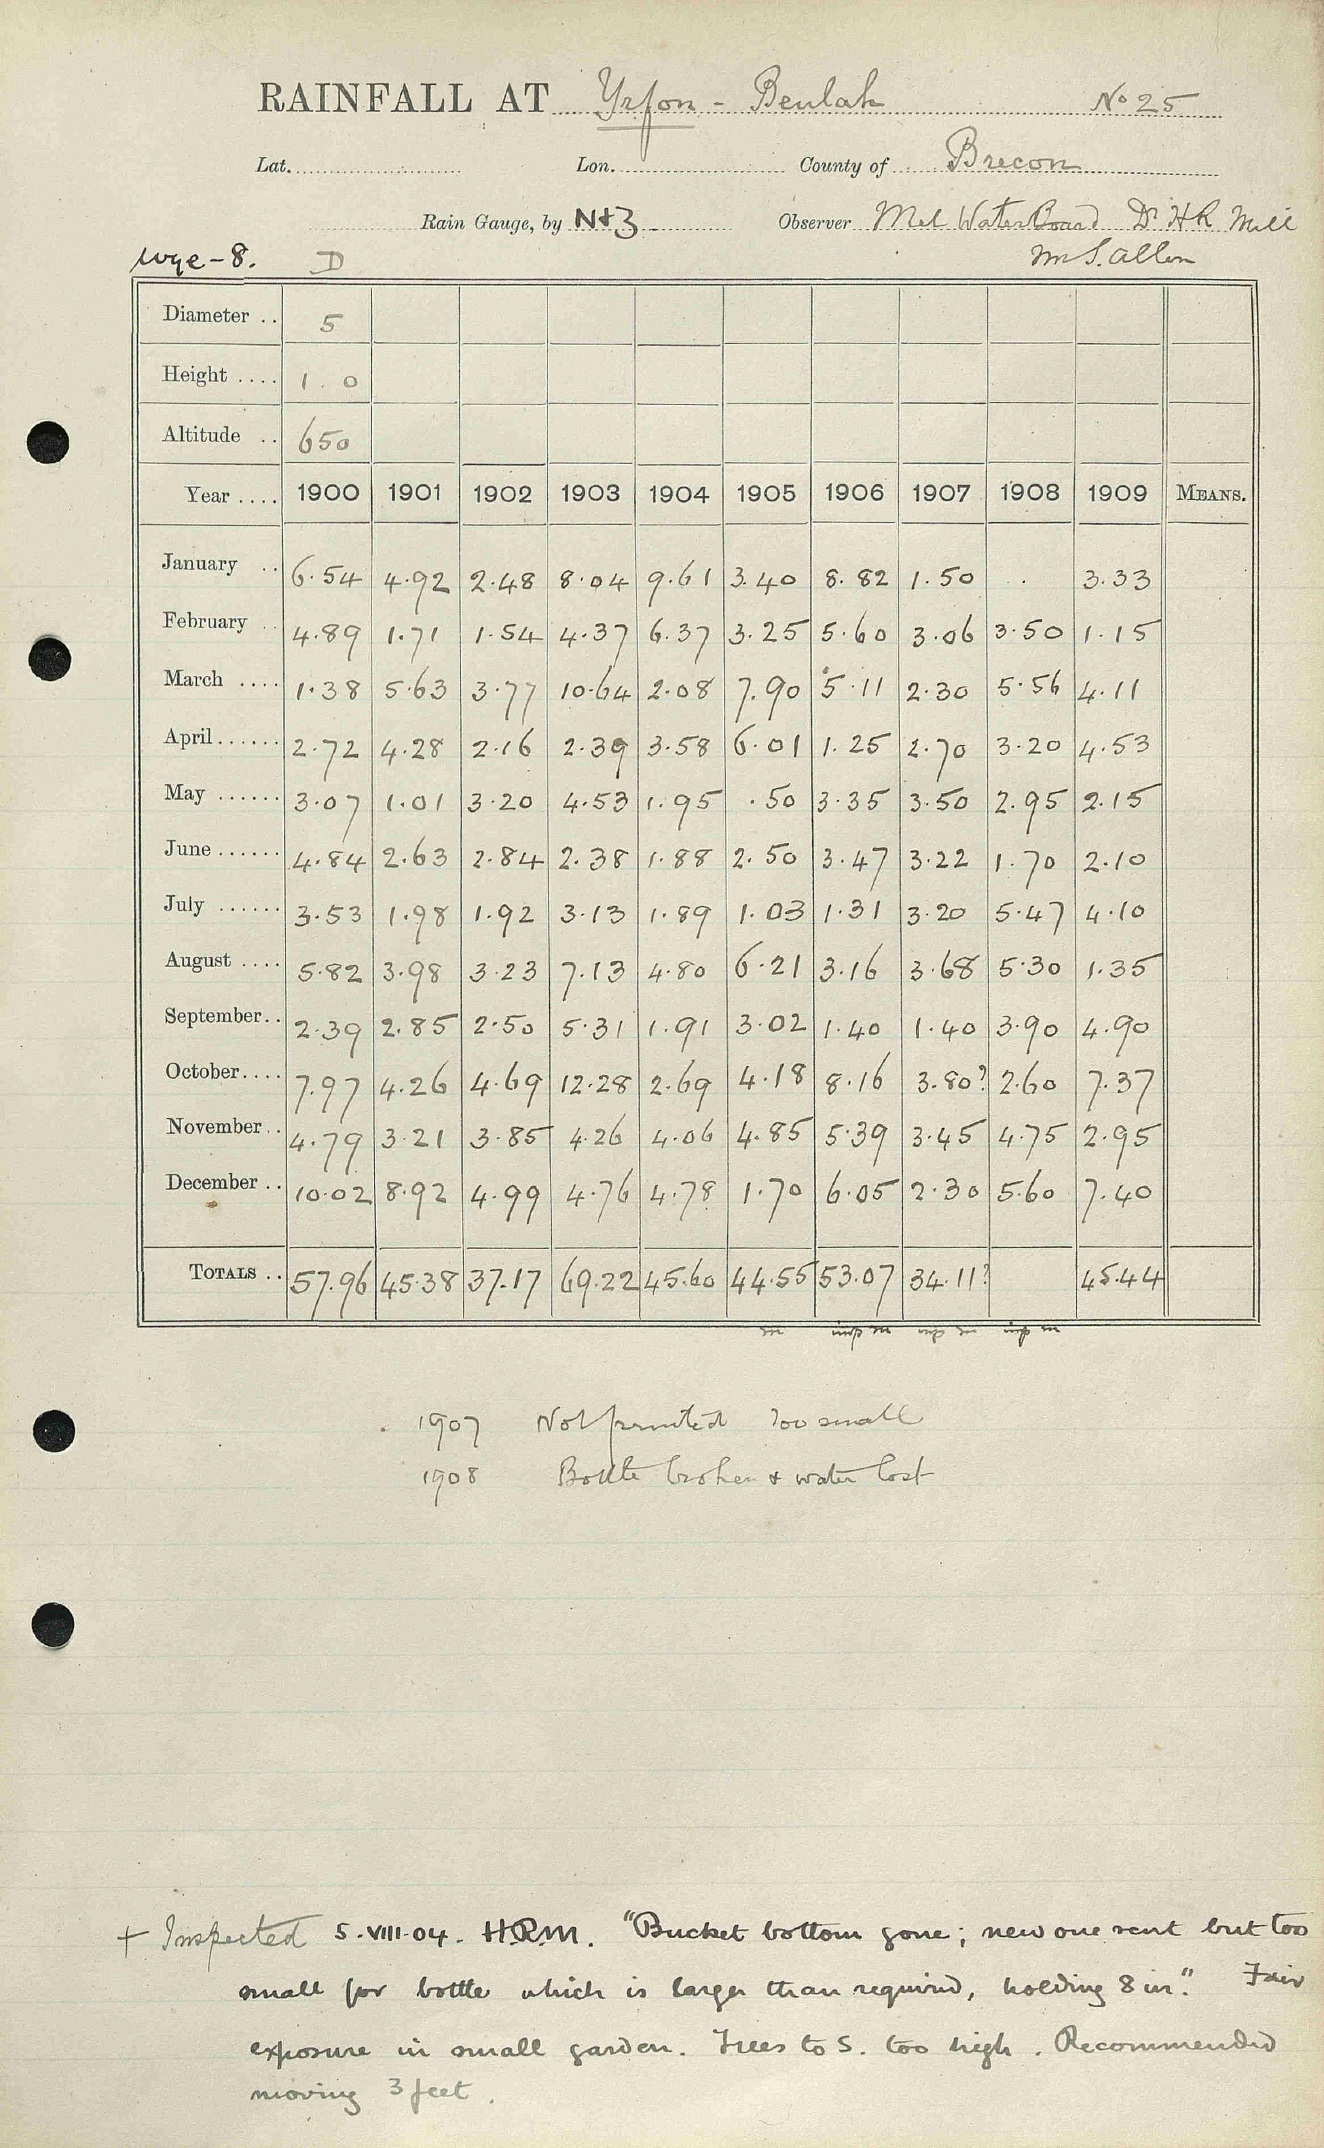 RAINFALL AT Yrfon - Beulah No 25
Lat. Lon. County of Brecon
Rain Gauge, by N+Z Observer Met Water Board Dr H R Mill
Wye-8. D Mr S. Allen
Diameter .. 5
Height .... 1.0
Altitude .. 650
Year .... 1900 1901 1902 1903 1904 1905 1906 1907 1908 1909 MEANS.
January .. 6.54 4.92 2.48 8.04 9.61 3.40 8.82 1.50 . 3.33
February .. 4.89 1.71 1.54 4.37 6.37 3.25 5.60 3.06 3.50 1.15
March .... 1.38 5.63 3.77 10.64 2.08 7.90 5.11 2.30 5.56 4.11
April ...... 2.72 4.28 2.16 2.39 3.58 6.01 1.25 2.70 3.20 4.53
May ...... 3.07 1.01 3.20 4.53 1.95 .50 3.35 3.50 2.95 2.15
June ...... 4.84 2.63 2.84 2.38 1.88 2.50 3.47 3.22 1.70 2.10
July ...... 3.53 1.98 1.92 3.13 1.89 1.03 1.31 3.20 5.47 4.10
August .... 5.82 3.98 3.23 7.13 4.80 6.21 3.16 3.68 5.30 1.35
September.. 2.39 2.85 2.50 5.31 1.91 3.02 1.40 1.40 3.90 4.90
October.... 7.97 4.26 4.69 12.28 2.69 4.18 8.16 3.80? 2.60 7.37
November.. 4.79 3.21 3.85 4.26 4.06 4.85 5.39 3.45 4.75 2.95
December .. 10.02 8.92 4.99 4.76 4.78 1.70 6.05 2.30 5.60 7.40
TOTALS .. 57.96 45.38 37.17 69.22 45.60 44.55 53.07 34.11? 45.44
1907 Not printed too small
1908 Bottle broken & water lost
+ Inspected 5.VIII.04. H.R.M. "Bucket bottom gone; new one sent but too
small for bottle which is larger than required, holding 8 in". Fair
exposure in small garden. Trees to S. too high. Recommended
moving 3 feet.